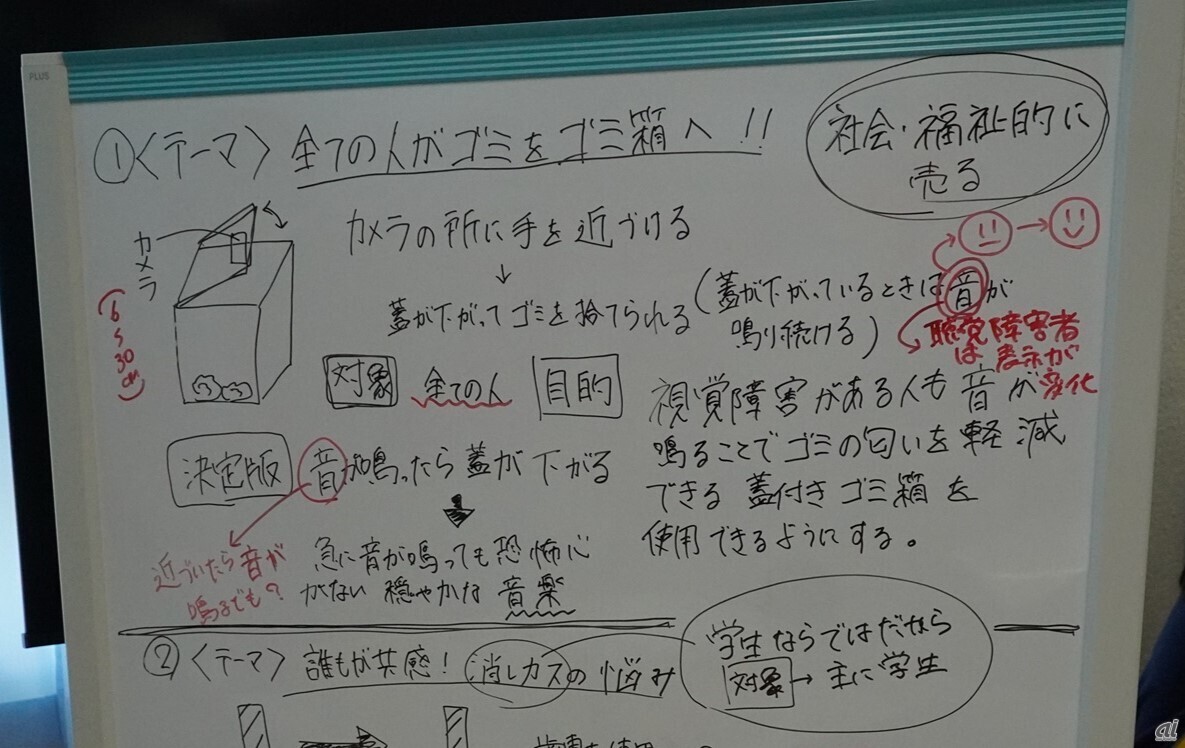 PLUS
①〈テーマ〉全ての人がゴミをゴミ箱へ!!
社会・福祉的に
売る
カメラ
カメラの所に手を近づける
↓
蓋が下がってゴミを捨てられる(蓋が下がっているときは音が
鳴り続ける)
聴覚障害者
は表示が
変化
30cm
対象 全ての人 目的
視覚障害がある人も音が
鳴ることでゴミの匂いを軽減
できる蓋付きゴミ箱を
使用できるようにする。
決定版 音が鳴ったら蓋が下がる
近づいたら音が
鳴るでも?
急に音が鳴っても恐怖心
がない穏やかな音楽
②〈テーマ〉誰もが共感!消しカスの悩み
学生ならではだなら
対象→主に学生
ai